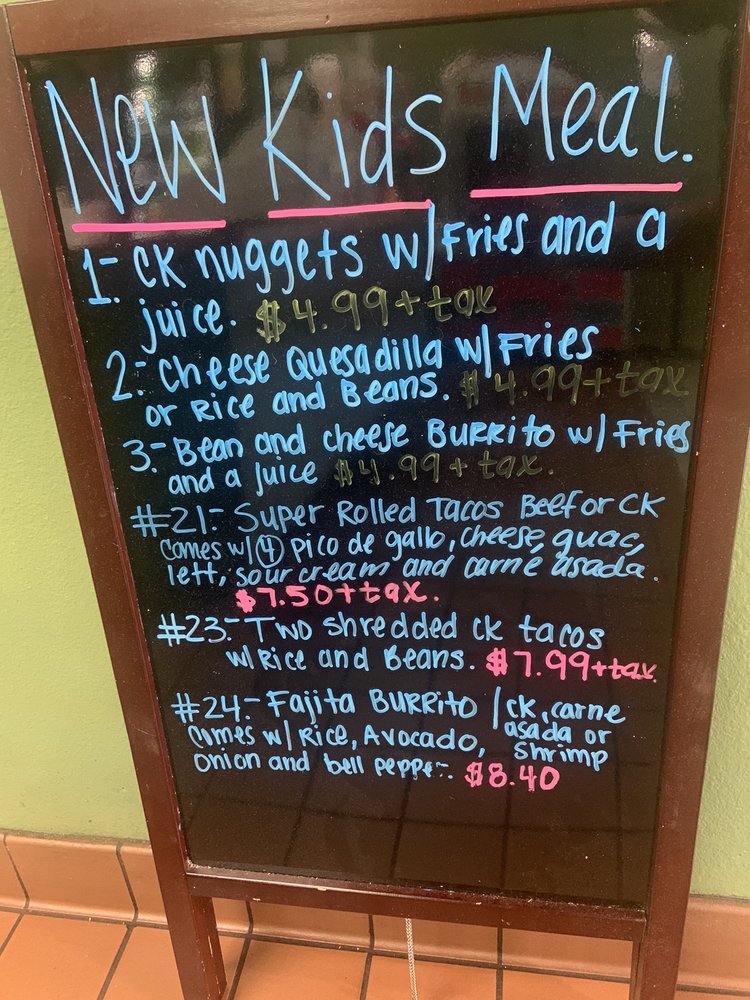 New Kids Meal.
1- CK nuggets w/Fries and a
juice. $4.99+tax
2- Cheese Quesadilla w/Fries
or Rice and Beans. $4.99+tax
3.- Bean and cheese Burrito w/Fries
and a juice $4.99+tax.
#21.- Super Rolled Tacos Beef or CK
Comes w/ 4 pico de gallo, cheese, guac,
lett, sour cream and carne asada.
$7.50+tax.
#23.- Two shredded CK tacos
w/Rice and Beans. $7.99+tax
#24.- Fajita Burrito / CK, carne
asada or
Comes w/ Rice, Avocado, shrimp
onion and bell pepper. $8.40